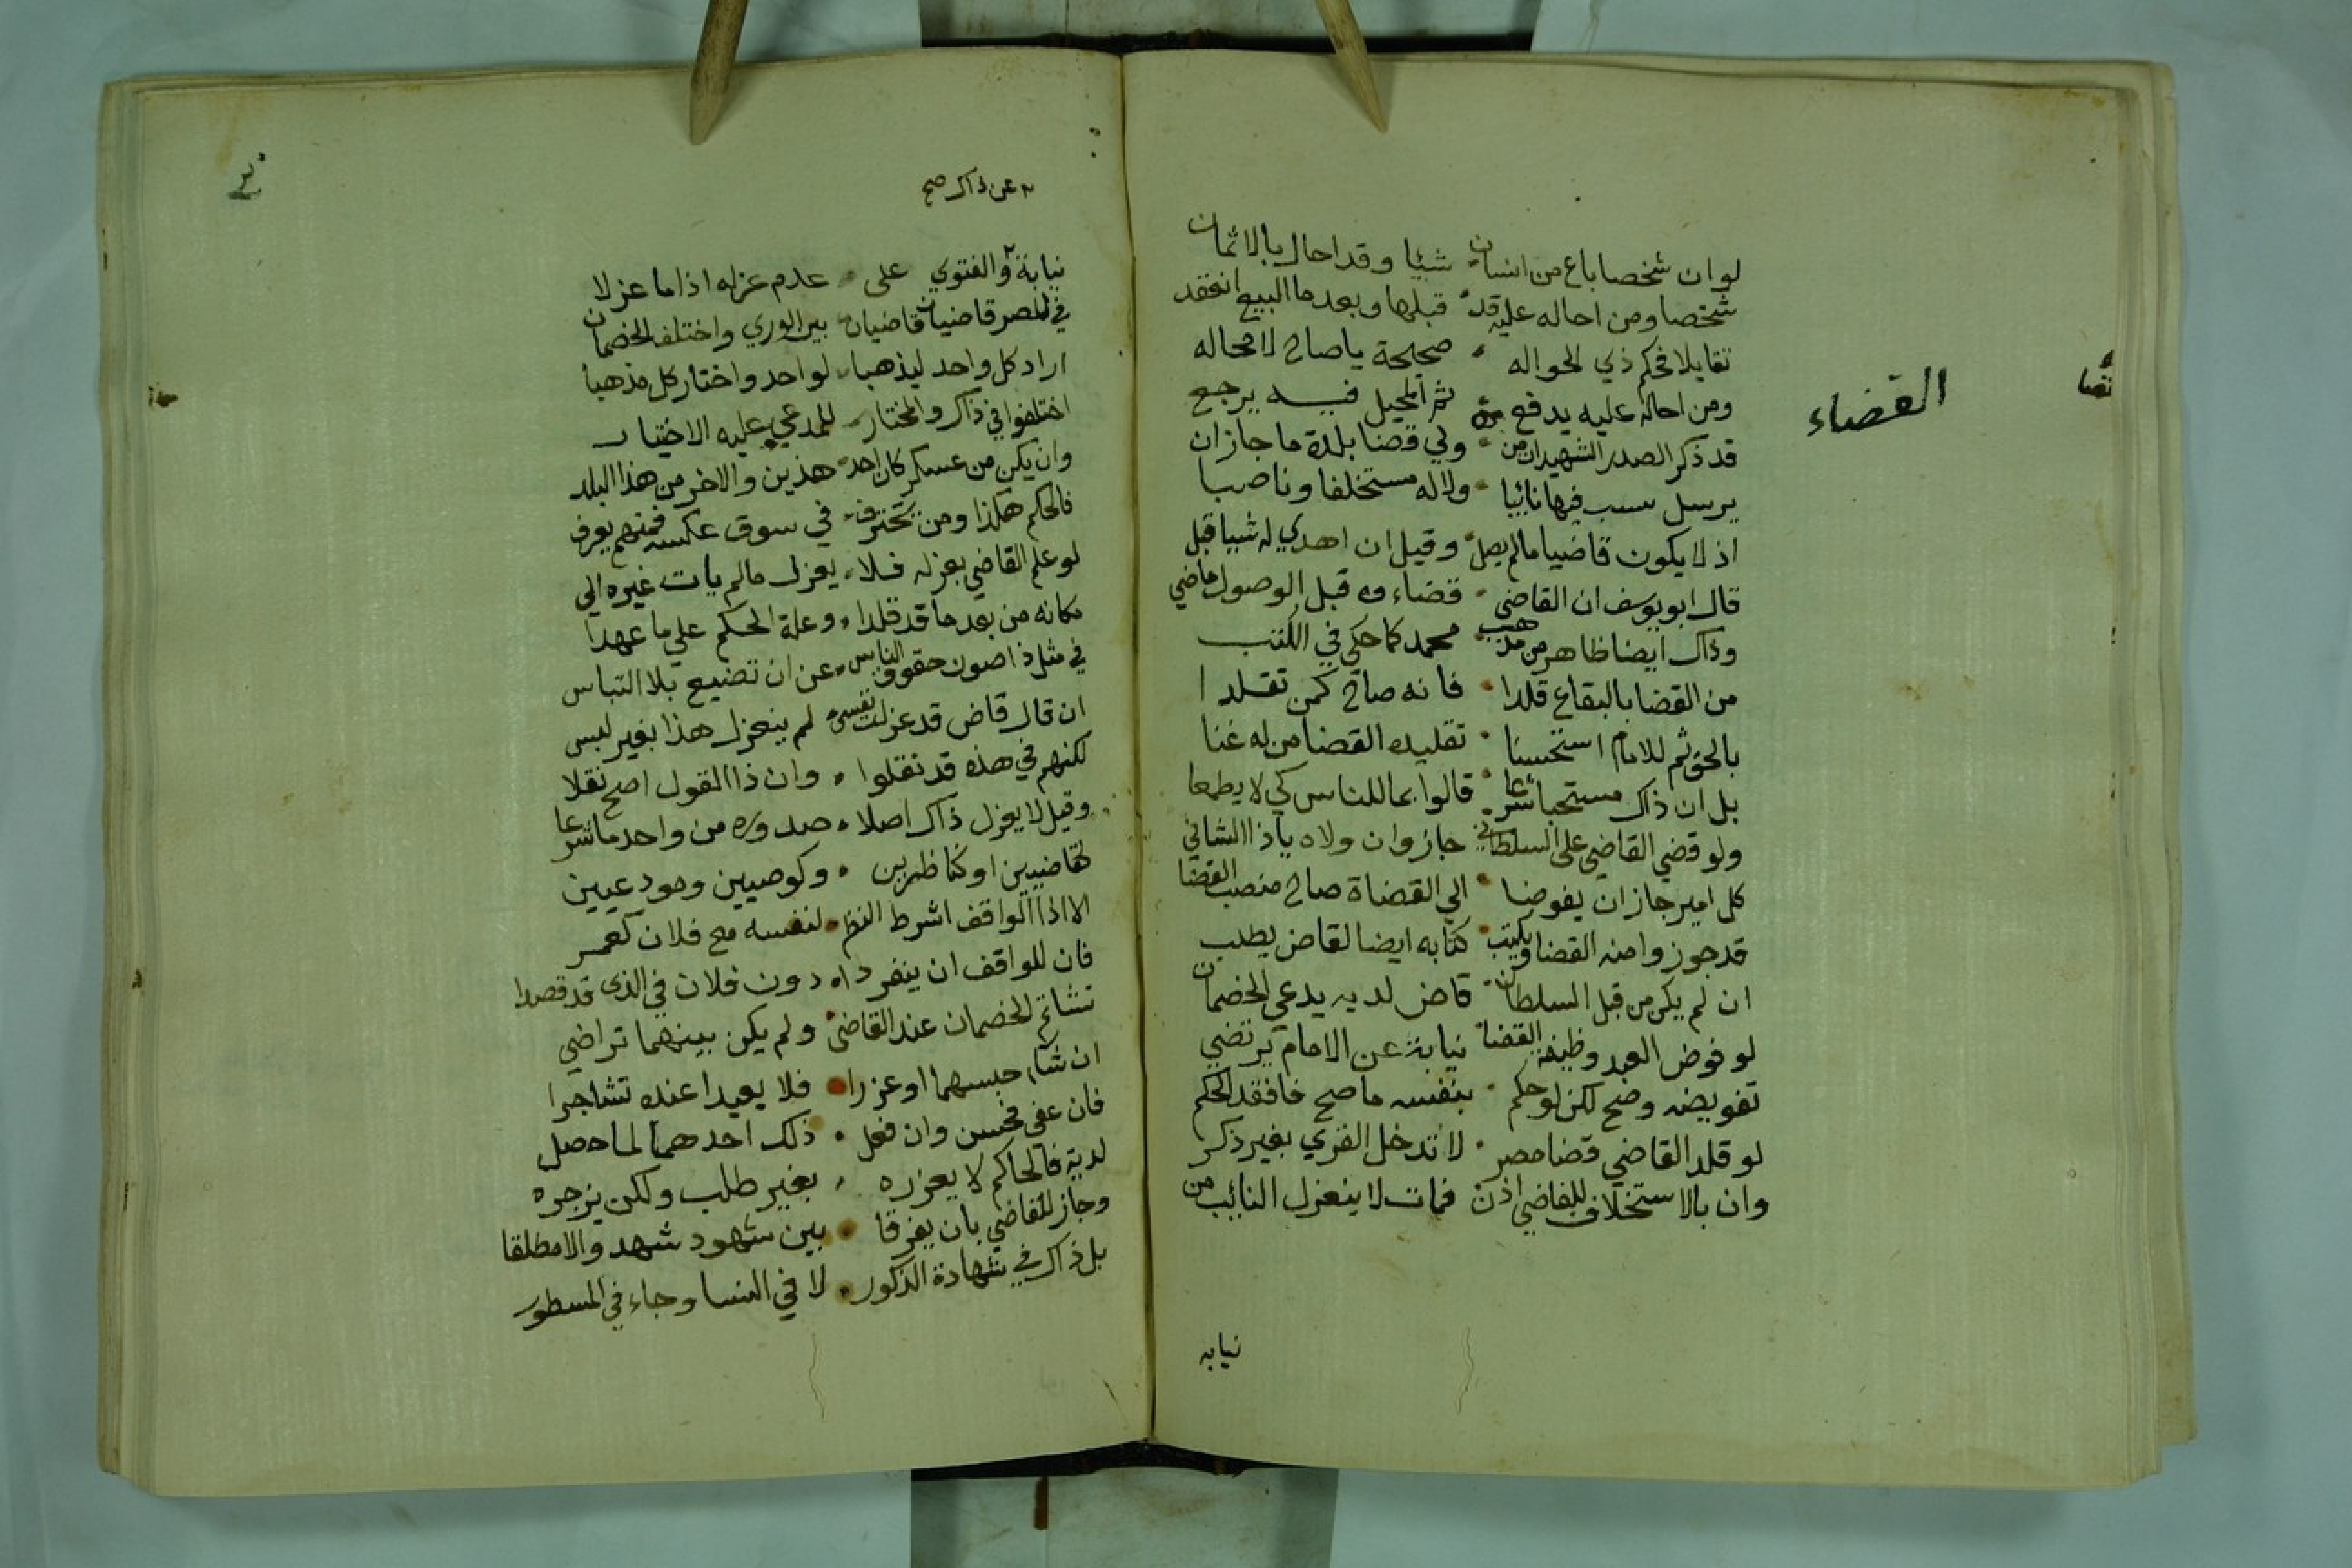 لو ان شخصا باع من انسان شيئا وقد احال بالاثمان
شخصا ومن احاله عليه قد قبلها وبعد ما البيع انعقد
تقايلا فحكم ذي الحواله صحيحة ياصاح لا محاله
ومن احاله عليه يدفع ثم المحيل فيه يرجع
القضاء
قد ذكر الصدر الشهيد ان من ولي قضا بلدة ما جاز ان
يرسل سبب فيها نائبا ولا له مستخلفا وناصبا
اذ لا يكون قاضيا مالم يصل وقيل ان اهدي له شيا قبل
قال ابو يوسف ان القاضي قضاءه قبل الوصول ماضي
وذاك ايضا ظاهر من مذهب محمد كما حكي في الكتب
من القضا بالبقاع قلدا فانه صاح كمن تقلدا
بالحق ثم للامام استحسنا تقليده القضا من له غنا
بل ان ذاك مستحبا شرعا قالوا بما للناس كي لا يطمعا
ولو قضي القاضي على السلطان جاز وان ولاه ياذا الشاني
كل امير جاز ان يفوضا الي القضاة صاح منصب القضا
قد جوزوا منه القضا ويكتب كتابه ايضا لقاض يطلب
ان لم يكن من قبل السلطان قاض لديه يدعي الخصمان
لو فوض العبد وظيفة القضا نيابة عن الامام يرتضي
تفويضه وصح لكن لو حكم بنفسه ما صح خافقد الحكم
لو قلد القاضي قضا مصر لا تدخل القري بغير ذكر
وان بالاستخلاف للقاضي اذن فمات لا ينعزل النائب من
نيابه
عن ذاك صح
نيابة والفتوي على عدم عزله اذا ما عزلا
في المصر قاضيان قاضيان بين الوري واختلف الخصمان
اراد كل واحد ليذهبا لواحد واختار كل مذهبا
اختلفوا في ذاك والمختار للمدعي عليه الاختيار
وان يكن من عسكر كان احد هذين والاخر من هذا البلد
فالحكم هكذا ومن يحترف في سوق عكسه فمنهم يعرف
لو علم القاضي بعزله فلا يعزل مالم يات غيره الي
مكانه من بعد ما قد قلدا وعلة الحكم علي ما عهدا
في مثل ذا صون حقوق الناس عن ان تضيع بلا التباس
ان قال قاض قد عزلت نفسي لم ينعزل هذا بغير لبس
لكنهم في هذه قد نقلوا وان ذا القول اصح نقلا
وقيل لا يعزل ذاك اصلا صدوره من واحد ما شرعا
كقاضيين او كناظرين وكوصيين ومودعيين
الا اذا الواقف اشرط النظر لنفسه مع فلان كعمر
فان للواقف ان ينفردا دون فلان في الذي قد قصدا
تشاتم الخصمان عند القاضي ولم يكن بينهما تراضي
ان شاء حبسهما او عزرا فلا يعيدا عنده تشاجرا
فان عفي فحسن وان فعل ذلك احدهما لما حصل
لديه فالحاكم لا يعزره بغير طلب ولكن يزجره
وجاز للقاضي بان يفرقا بين شهود شهد والا مطلقا
بل ذاك في شهادة الذكور لا في النسا وجاء في المسطور